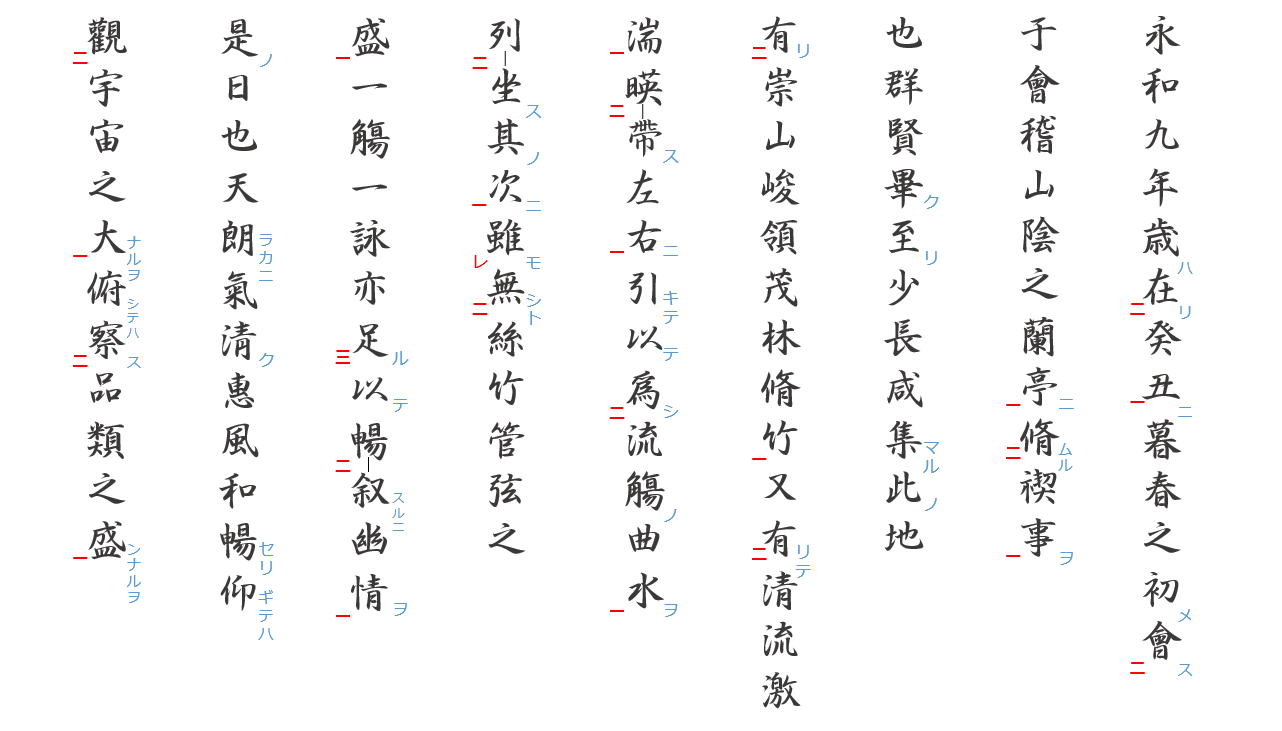 永和九年歳ハ在二リ癸丑一ニ暮春之初メ會二ス
于會稽山陰之蘭亭一ニ脩二ムル禊事一ヲ
也群賢畢ク至リ少長咸集マル此ノ地
有二リ崇山峻領茂林脩竹一又有二リテ清流激
湍一暎二-帯ス左右一ニ引キテ以テ爲二シ流觴ノ曲水一ヲ
列二-坐ス其ノ次一ニ雖レモ無二シト絲竹管弦之
盛一一觴一詠亦足三ル以テ暢二-叙スルニ幽情一ヲ
是ノ日也天朗ラカニ氣清ク惠風和暢セリ仰ギテハ
觀二宇宙之大一ナルヲ俯シテハ察二ス品類之盛一ンナルヲ